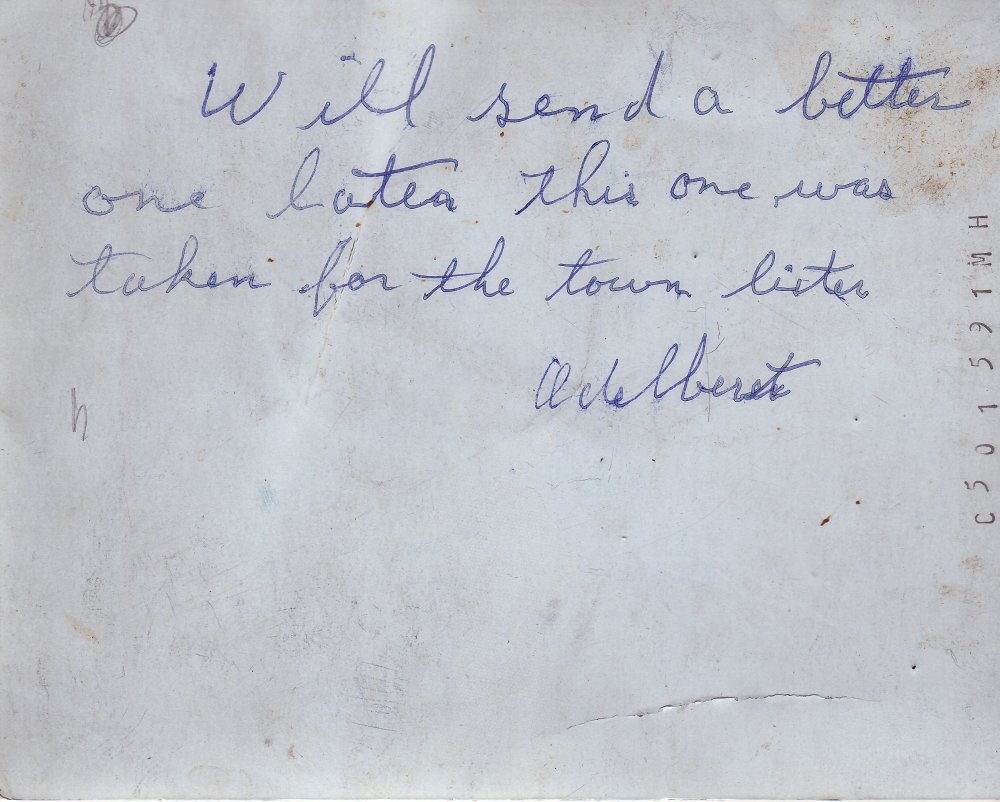 Will send a better
one later this one was
taken for the town lister
Adelbert
h
C501591MH